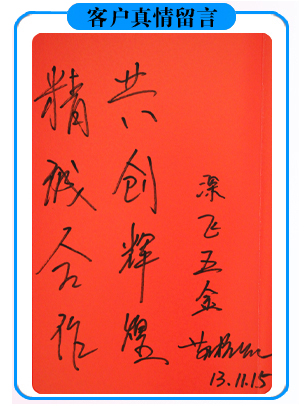 客户真情留言
精诚合作
共创辉煌
深飞五金
13.11.15